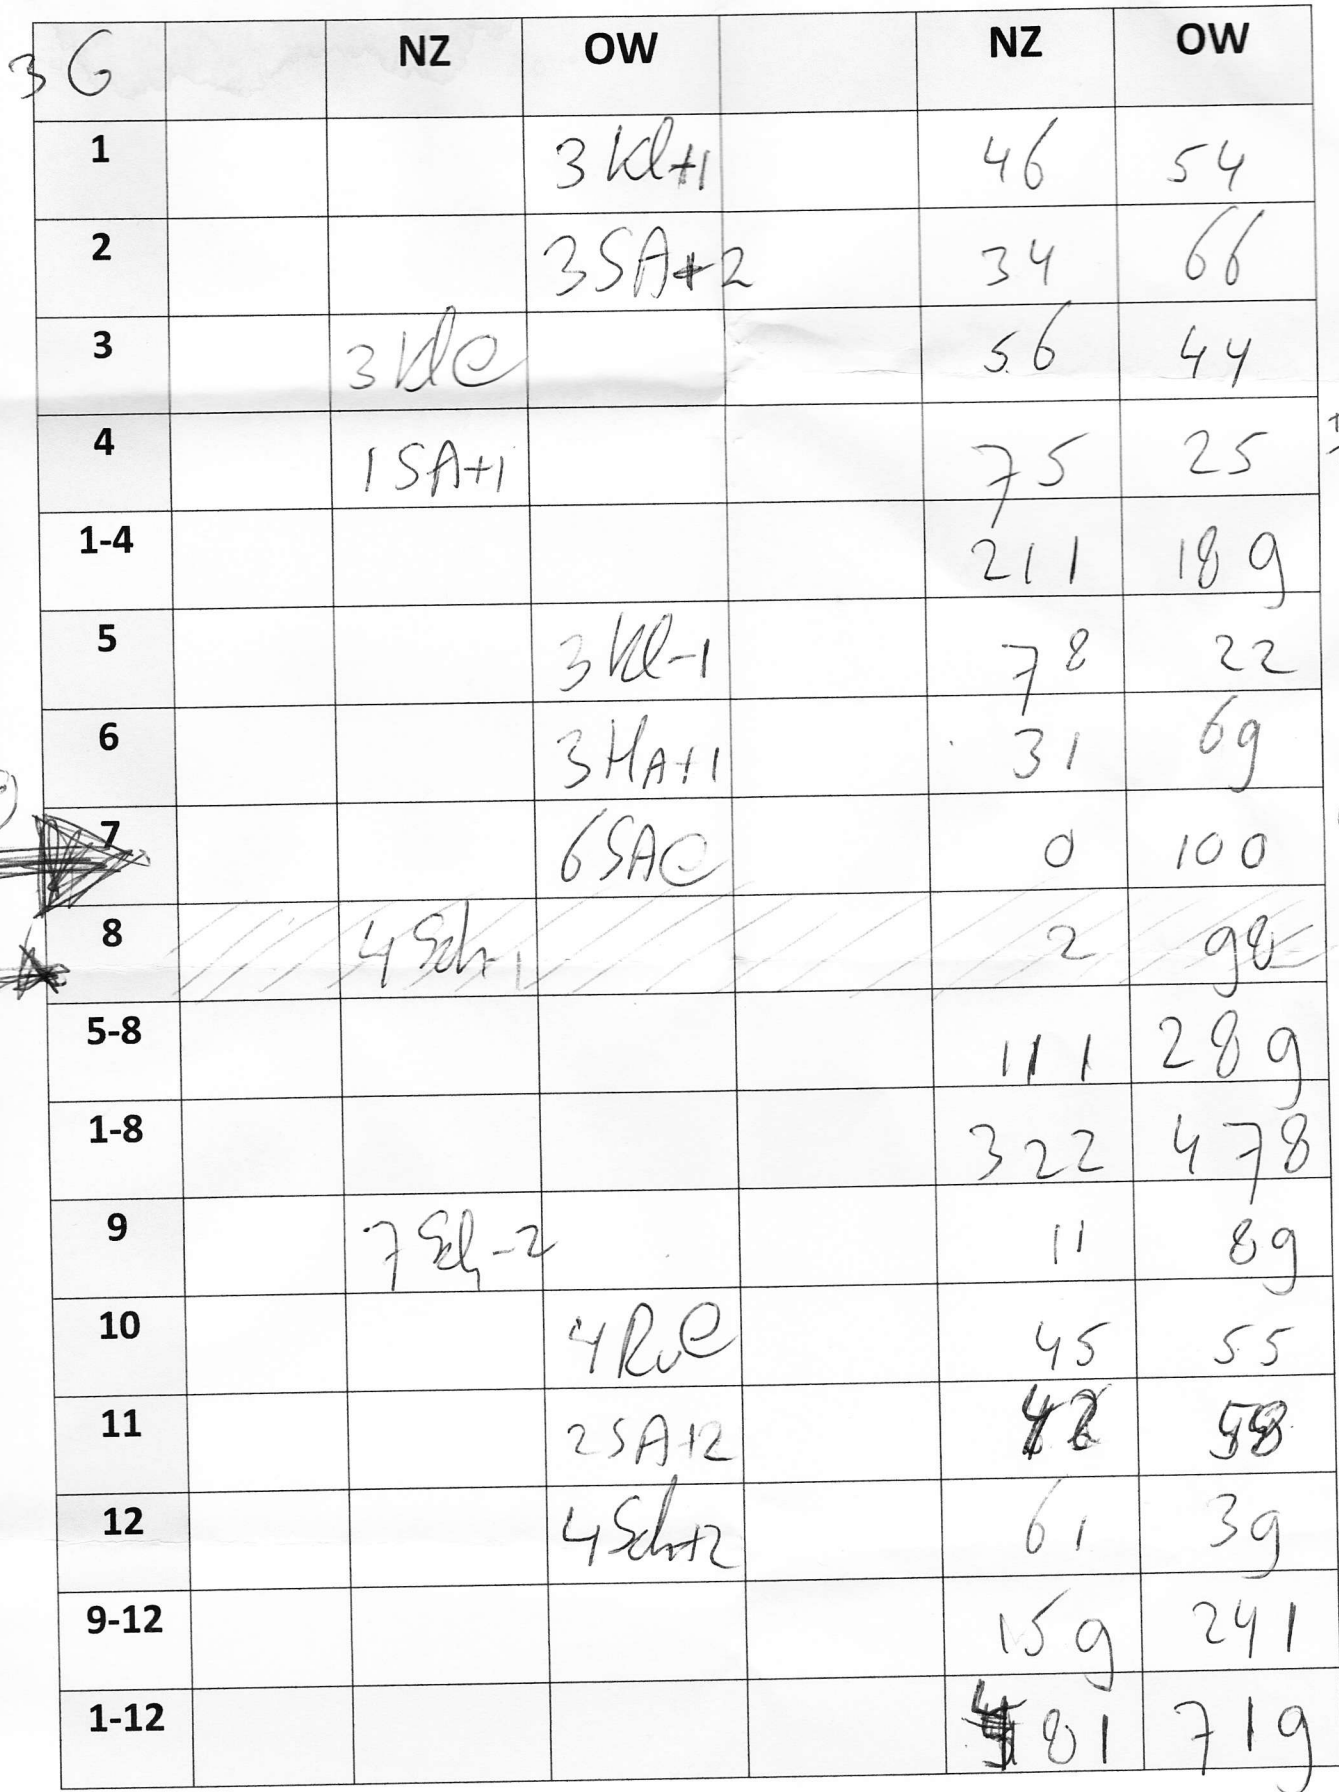 3G NZ OW NZ OW
1 3Kl+1 46 54
2 3SA+2 34 66
3 3Kl= 56 44
4 1SA+1 75 25
1-4 211 189
5 3Kl-1 78 22
6 3HA+1 31 69
7 6SA= 0 100
8 4Sch-1 2 98
5-8 111 289
1-8 322 478
9 7Sch-2 11 89
10 4Ru= 45 55
11 2SA+2 42 58
12 4Sch+2 61 39
9-12 159 241
1-12 481 719